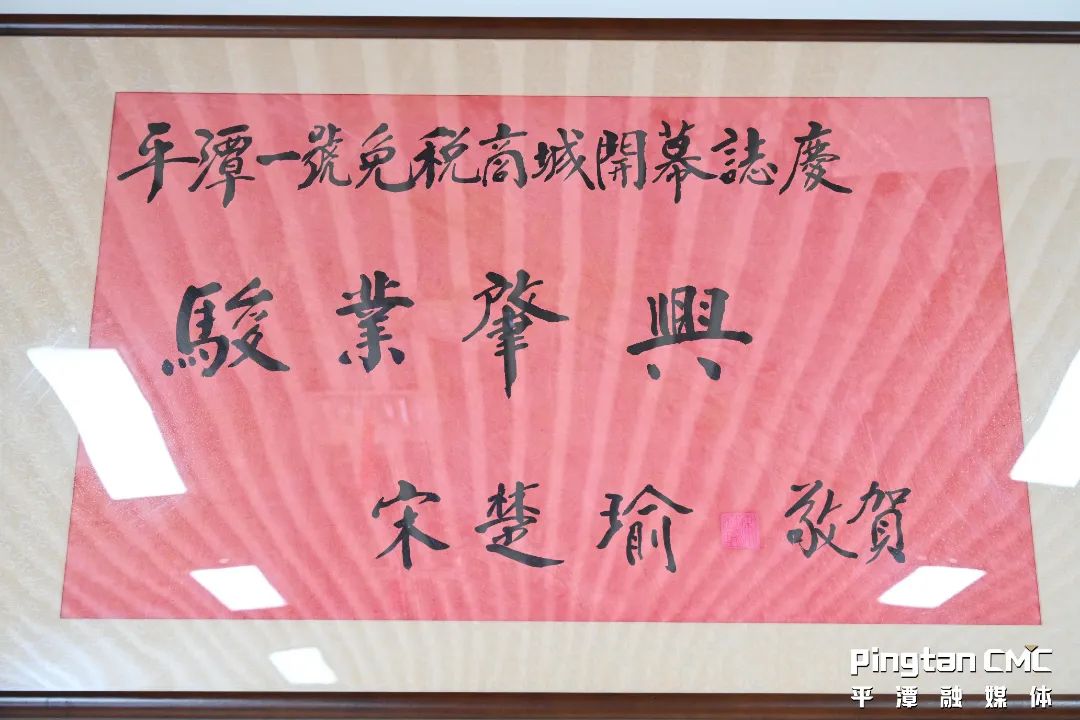 平潭一號免税商城開幕誌慶
駿業肇興
宋楚瑜 敬賀
Pingtan CMC
平潭融媒体